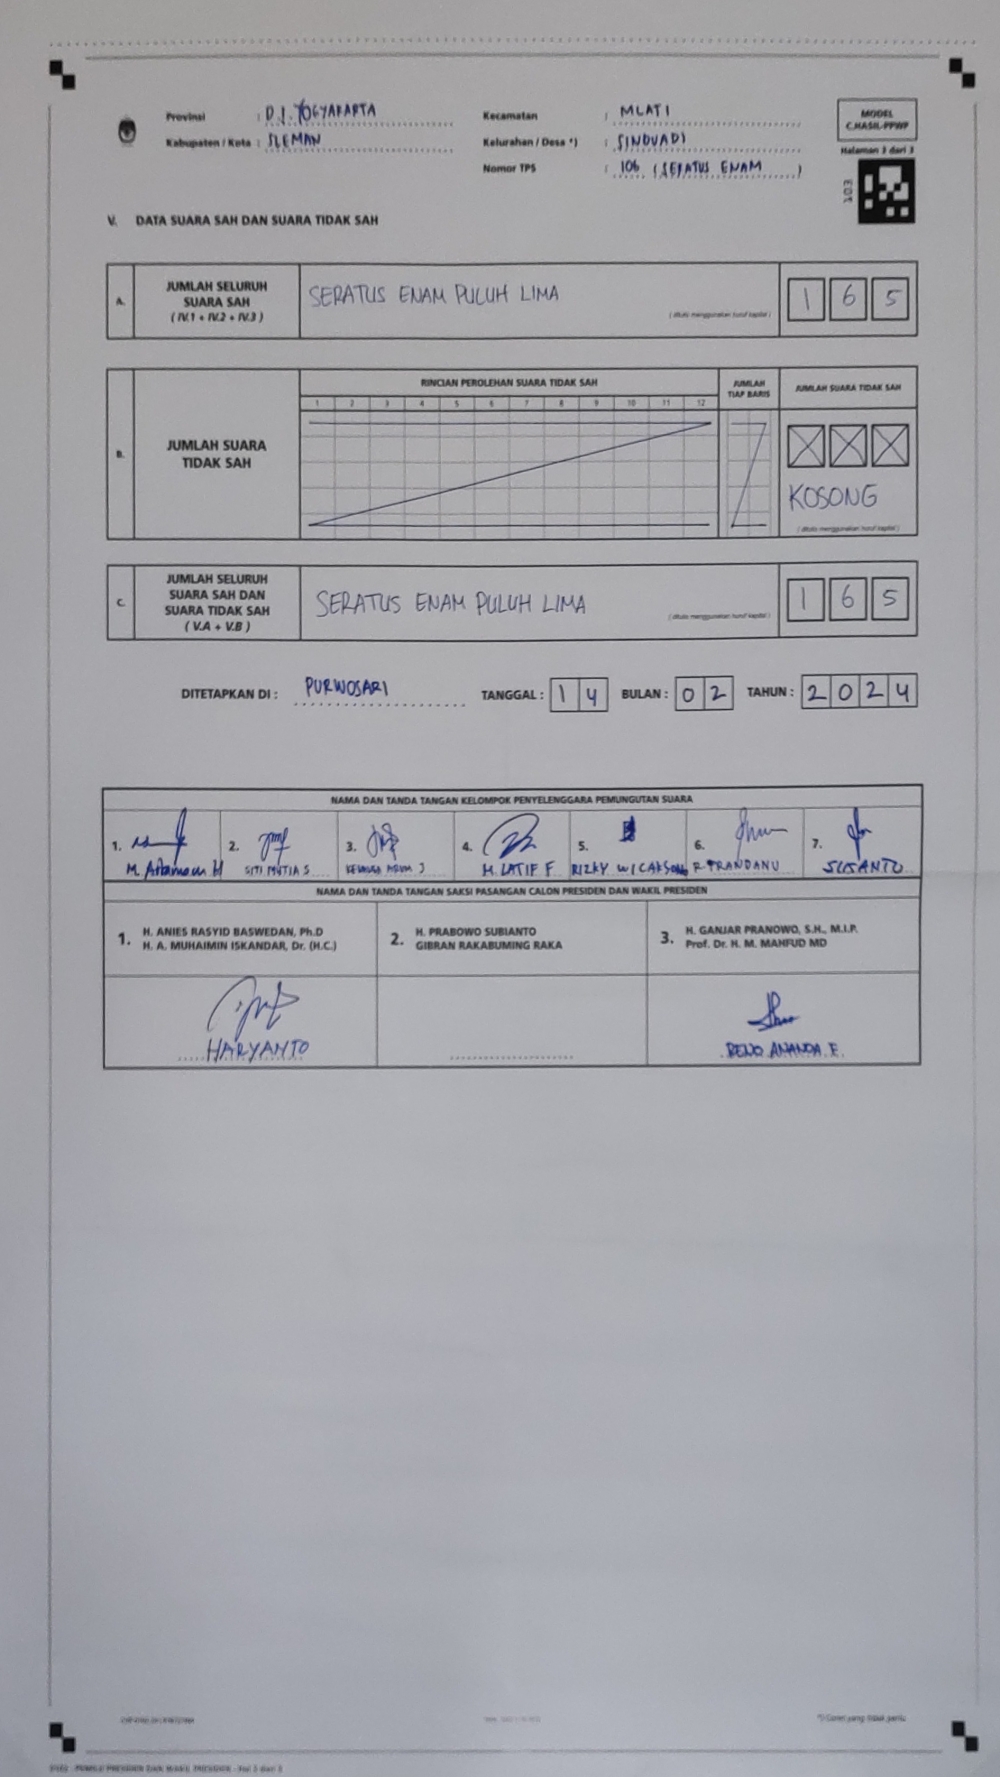 Provinsi : D.I. YOGYAKARTA
Kabupaten / Kota : SLEMAN
Kecamatan : MLATI
Kelurahan / Desa *) : SINDUADI
Nomor TPS : 106 (SERATUS ENAM )
MODEL
C.HASIL-PPWP
Halaman 3 dari 3
103
V. DATA SUARA SAH DAN SUARA TIDAK SAH
A. JUMLAH SELURUH
SUARA SAH
( IV.1 + IV.2 + IV.3 )
SERATUS ENAM PULUH LIMA
( ditulis menggunakan huruf kapital )
1 6 5
B. JUMLAH SUARA
TIDAK SAH
RINCIAN PEROLEHAN SUARA TIDAK SAH
1 2 3 4 5 6 7 8 9 10 11 12
JUMLAH
TIAP BARIS
JUMLAH SUARA TIDAK SAH
X X X
KOSONG
( ditulis menggunakan huruf kapital )
C. JUMLAH SELURUH
SUARA SAH DAN
SUARA TIDAK SAH
( V.A + V.B )
SERATUS ENAM PULUH LIMA
( ditulis menggunakan huruf kapital )
1 6 5
DITETAPKAN DI : PURWOSARI TANGGAL : 14 BULAN : 02 TAHUN : 2024
NAMA DAN TANDA TANGAN KELOMPOK PENYELENGGARA PEMUNGUTAN SUARA
1. 2. 3. 4. 5. 6. 7.
M. H SITI MUTIA S M. LATIF F. RIZKY WICAKSONO R PRANDANU SUSANTO
NAMA DAN TANDA TANGAN SAKSI PASANGAN CALON PRESIDEN DAN WAKIL PRESIDEN
1. H. ANIES RASYID BASWEDAN, Ph.D
H. A. MUHAIMIN ISKANDAR, Dr. (H.C.)
2. H. PRABOWO SUBIANTO
GIBRAN RAKABUMING RAKA
3. H. GANJAR PRANOWO, S.H., M.I.P.
Prof. Dr. H. M. MAHFUD MD
HARYANTO
RENO ANANDA E.
*) Coret yang tidak perlu
PEMILU PRESIDEN DAN WAKIL PRESIDEN - Hal 3 dari 3